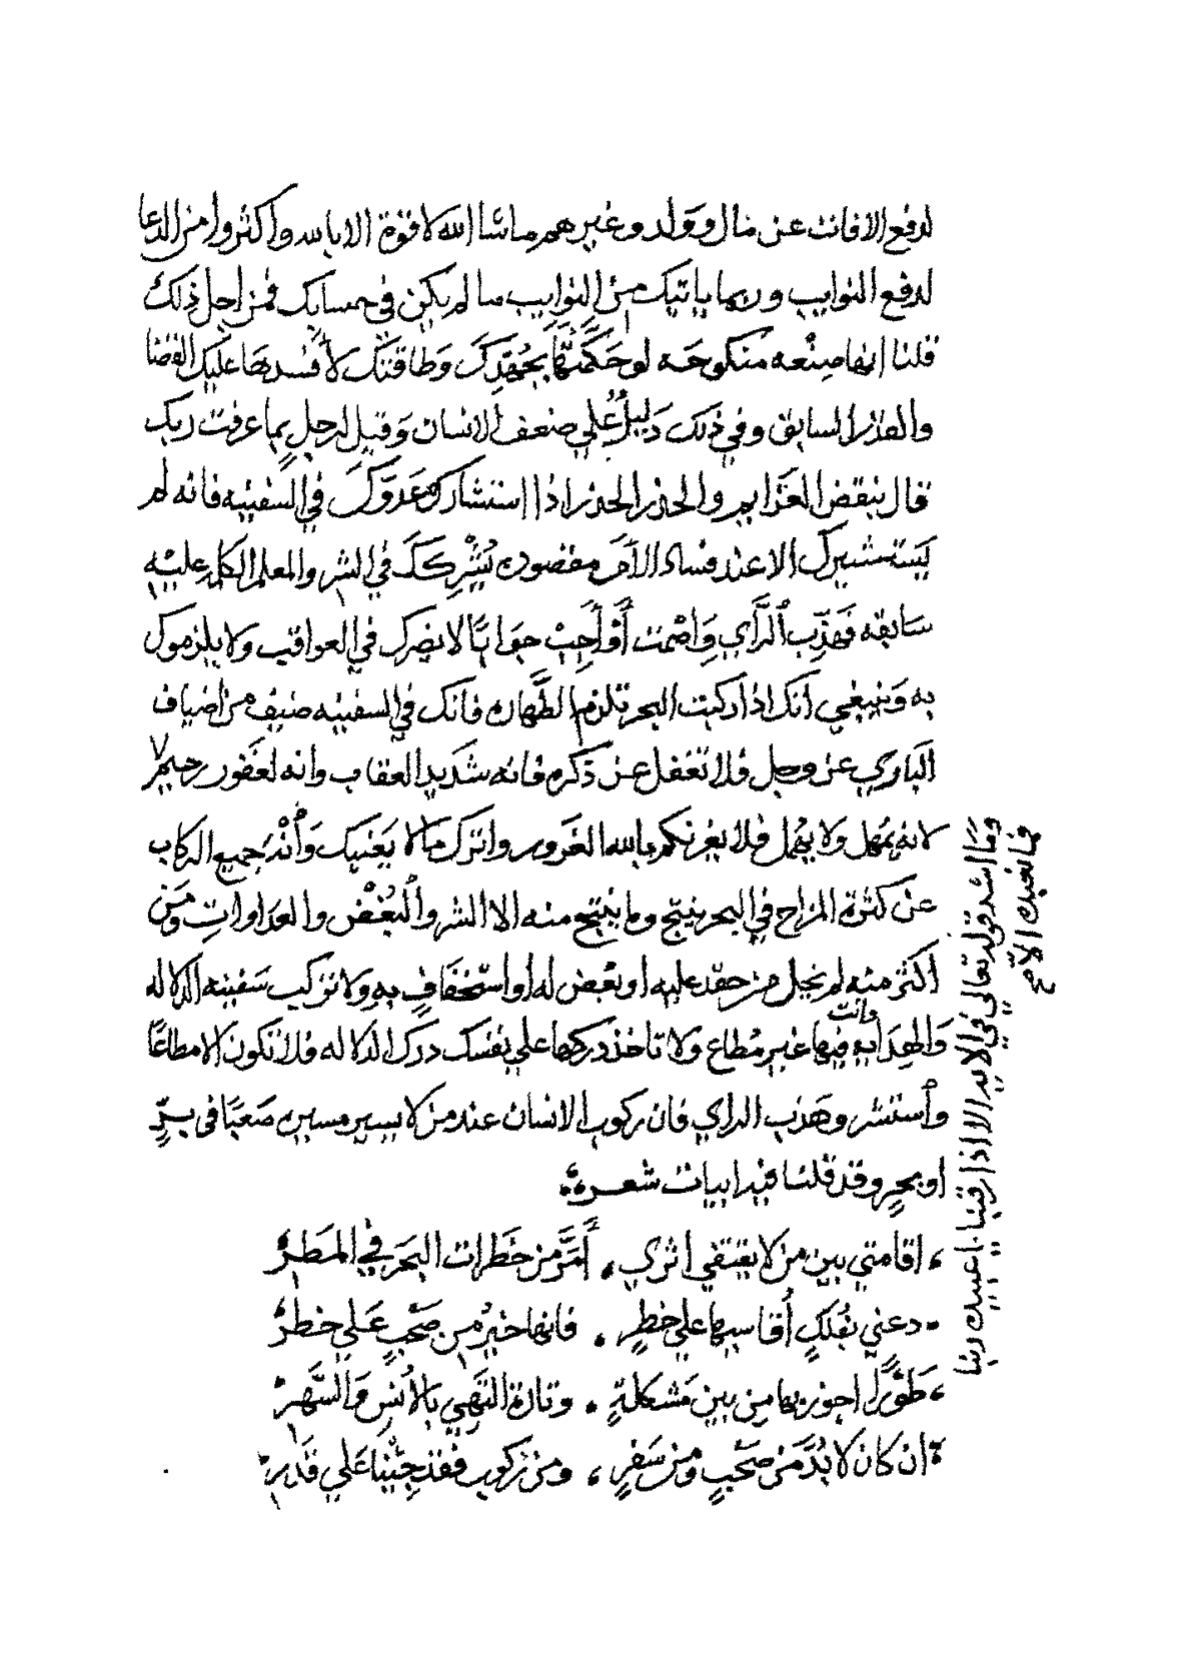 لدفع الافات عن مال وولد وغيرهم ماشا الله لا قوة الا بالله واكثروا من الدعا
لدفع النوايب وربما ياتيك من النوايب ما لم يكن في حسابك فمن اجل ذلك
قلنا انها صنعه منكوحه لوحكمتها بجهدك وطاقتك لأفسدها عليك القضا
والقدر السابق وفي ذلك دليلٌ علي ضعف الانسان وقيل لرجلٍ بما عرفت ربك
قال بنقض العزايم والحذر الحذر اذا استشارك عدوّك في السفينه فانه لم
يستشيرك الا عند فساد الأمر مقصوده يُشْرِكَكَ في الشر والمعلم الكل عليه
سابقه فهذّب الرّأي وَاصْمت أوْ أجِبْ جوابًا لا يضرك في العواقب ولا يلزموك
به وينبغي انك اذا ركبت البحر تلزم الطَّهاره فانك في السفينه ضيف من اضياف
الباري عز وجل فلا تغفل عن ذكره فانه شديد العقاب وانه لغفور رحيم
لانه يمهل ولا يهمل فلا يغرنكم بالله الغرور واترك ما لا يَعْنيك وَأنْهَ جميع الركاب
عن كثرة المزاح في البحر ينتج وما ينتج منه الا الشر والبُغْض والعداوات ومَن
اكثر منه لم يخل من حقد عليه او بغض له او استخفافٍ به ولا تركب سفينه الدلاله
وَالهدايه وانت فيها غير مُطاع ولا تاخذ دركها علي نفسك درك الدلاله فلا تكون الا مطاعًا
وٱستشر وهذب الراي فان ركوب الانسان عند من لا يسير مسيره صَعبًا في برٍّ
او بحرٍ وقد قلنا فيه ابيات شعر
اقامتي بين من لا يقتفي اثري ، أمَرَّ من خَطرات البحَر في المَطرْ
دعني بفُلكٍ أقاسيها علي خطرٍ . فانها خيرٌ من صَحْبٍ عَلي خطرْ
طَوْرًا اجوز بها من بين مَشكلةٍ . وتارة التَهي بالأنسِ وَالسَّهرْ
ان كان لا بُدَّ من صَحْبٍ ومن سَفرٍ ، ومن ركوب فقد جئنا عَلي قدَرِ
وما اشد قوله تعالي في الايه الا اذا ركبنا
فما نعبدك الا